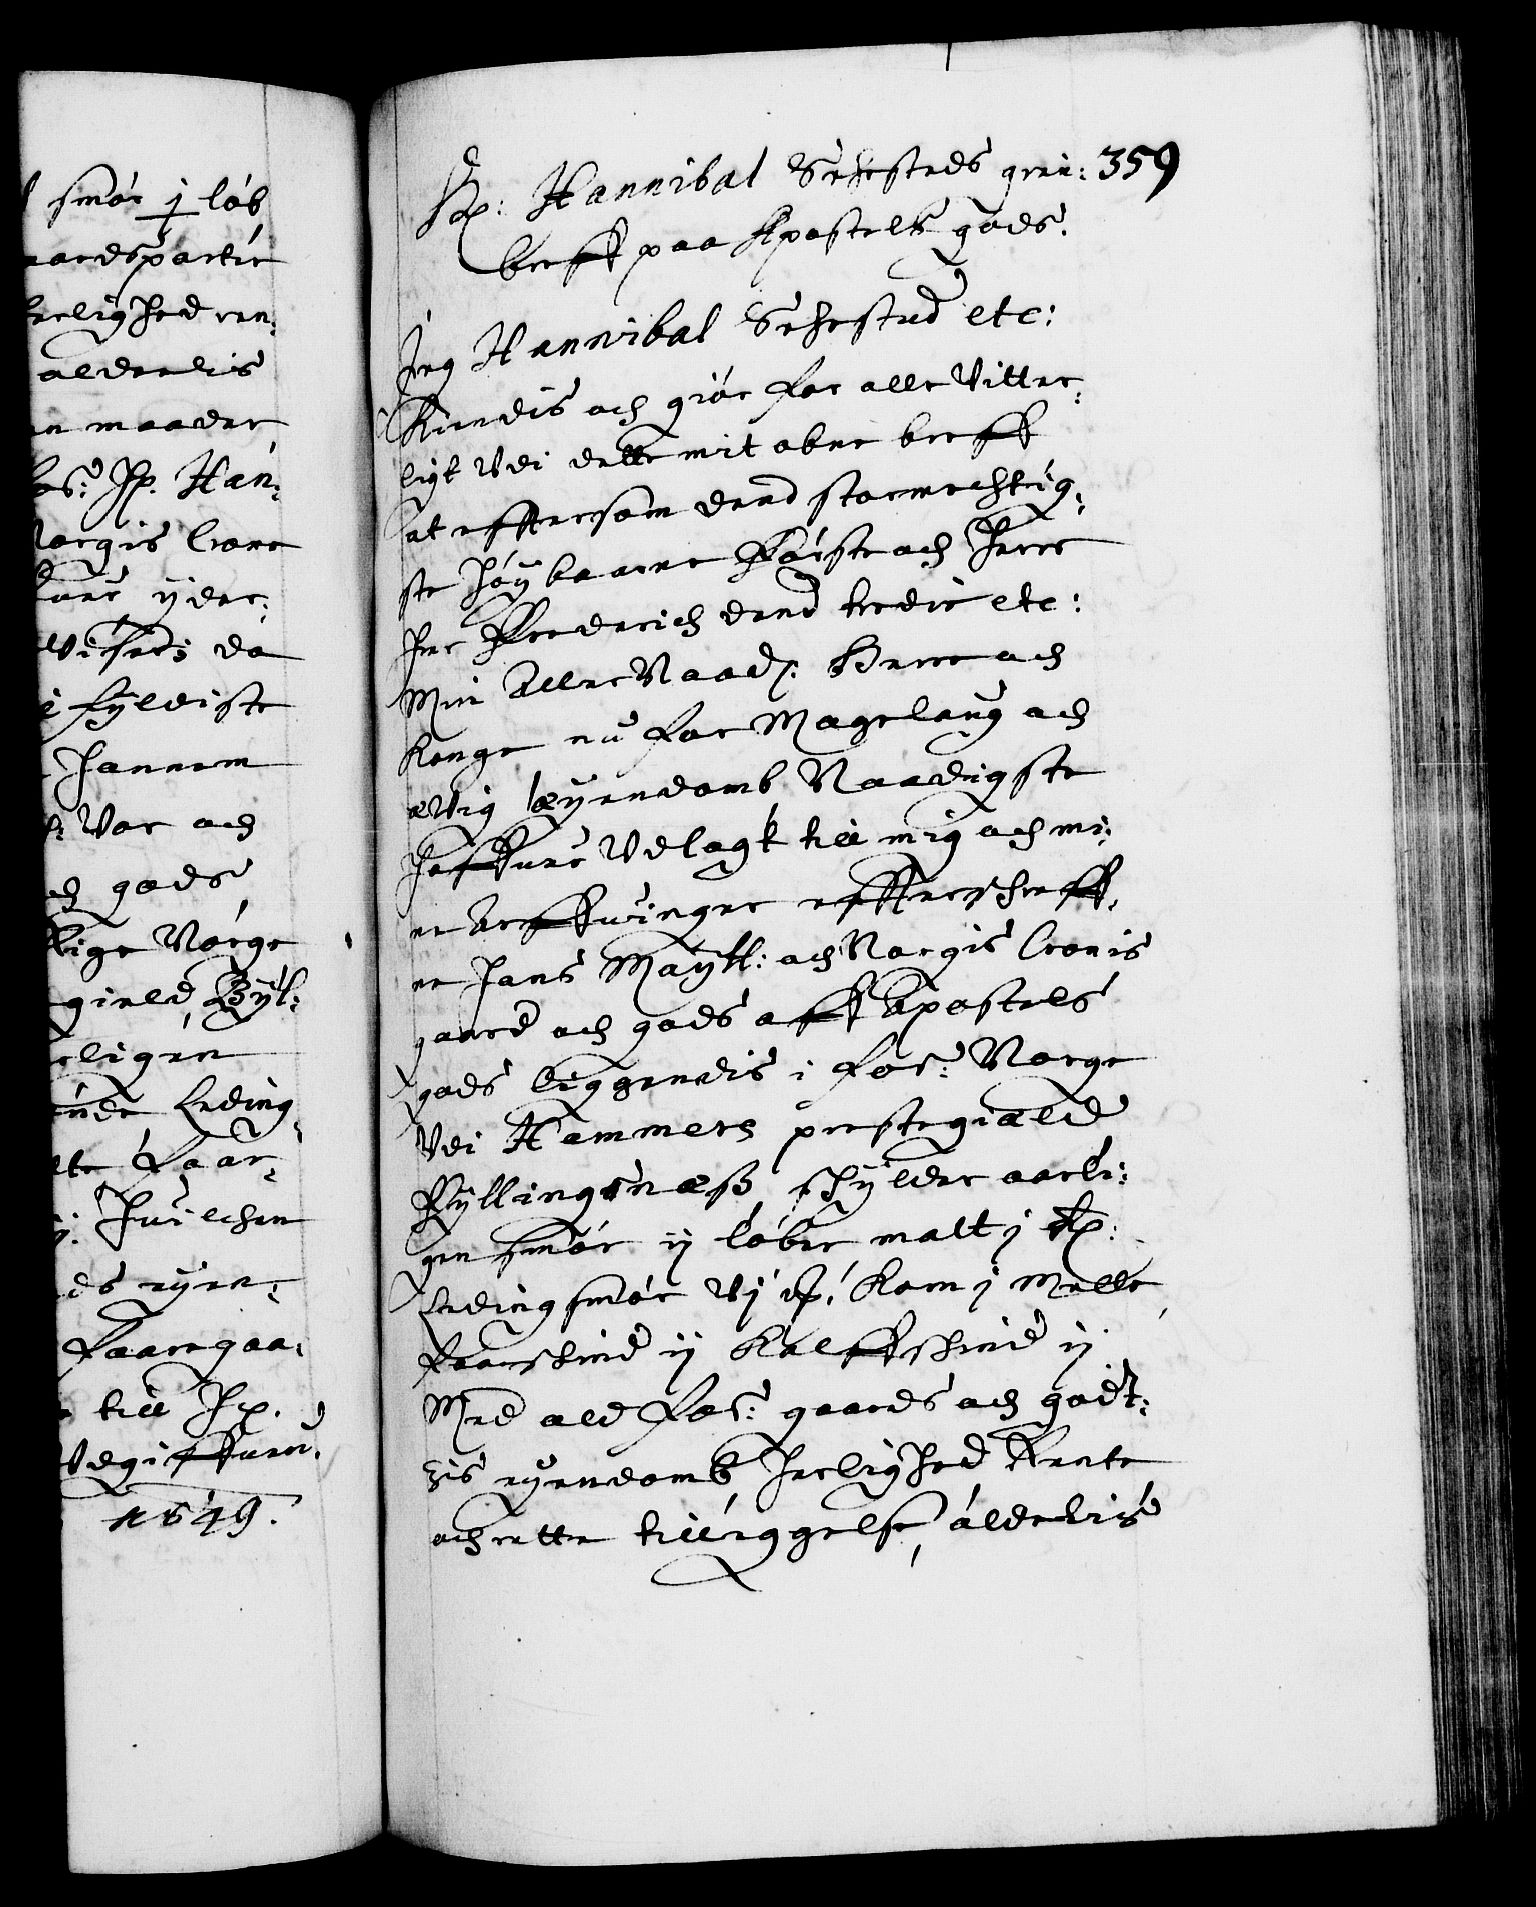 smör j löb
aardsparter
herlighed ren:
alderlis
n maader
Hr. Han:
Norgis Crone
yder:
da
fyldiste
hannem
Var och
gods
Rige Norge
gield, Byl:
eligen
Leding
faar:
huilchen
ds eyen:
faaregaa:
till Hr.
Udgiffuen.
1649.
Hr: Hannibal Sehesteds gien: 359
breff paa Apostels gods.
Jeg Hannibal Sehested etc:
Kiendis och giör for alle Vitter:
ligt Udi dette mit obne breff
at effttersom dend stormechtig:
ste höybaarne Förste och Herre
Her Frederich dend tredie etc:
Min Aller Naadr. Herre och
Konge nu for Magelaug och
æVig æyendomb Naadigste
haffuer Udlagt till mig och mi:
ne Arffuinger effterschreff:
ne Hans Maytt: och Norgis Cronis
gaard och gods aff Apostels
gods liggendis i for: Norge
Udi Hammers prestegiæld
Fyllingsnæss, schylder aarli:
gen smör ij löber malt j
Leding smör Vj Korn j Melle
faarschind ij Kalffschind ij
Med ald for: gaards och godt:
zis eyendomb, herlighed Rente
och rette tilliggelse, aldelis